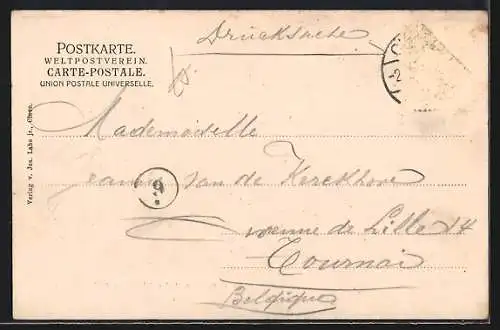 Drucksache
POSTKARTE.
WELTPOSTVEREIN.
CARTE-POSTALE.
UNION POSTALE UNIVERSELLE.
Mademoiselle
Jeanne van de Kerckhove
Avenue de Lille 14
Tournai
Belgique
9
Verlag v. Jos. Lahs jr., Cleve.